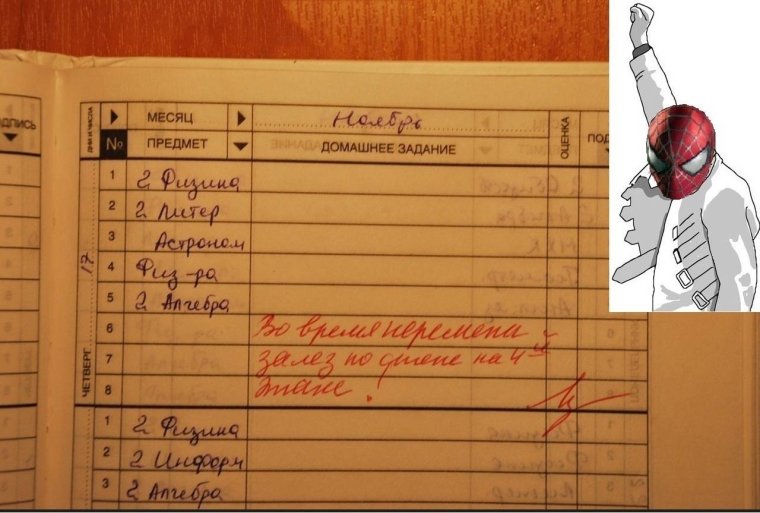 ДПИСЬ
ДНИ И ЧИСЛА
МЕСЯЦ
Ноябрь
ОЦЕНКА
ПОД
№
ПРЕДМЕТ
ДОМАШНЕЕ ЗАДАНИЕ
17
ЧЕТВЕРГ
1 2 Физика
2 2 Литер
3 Астроном
4 Физ-ра
5 2 Алгебра
6 Во время перемены
7 залез по стене на 4ый
8 этаж!
1 2 Физика
2 2 Информ
3 2 Алгебра